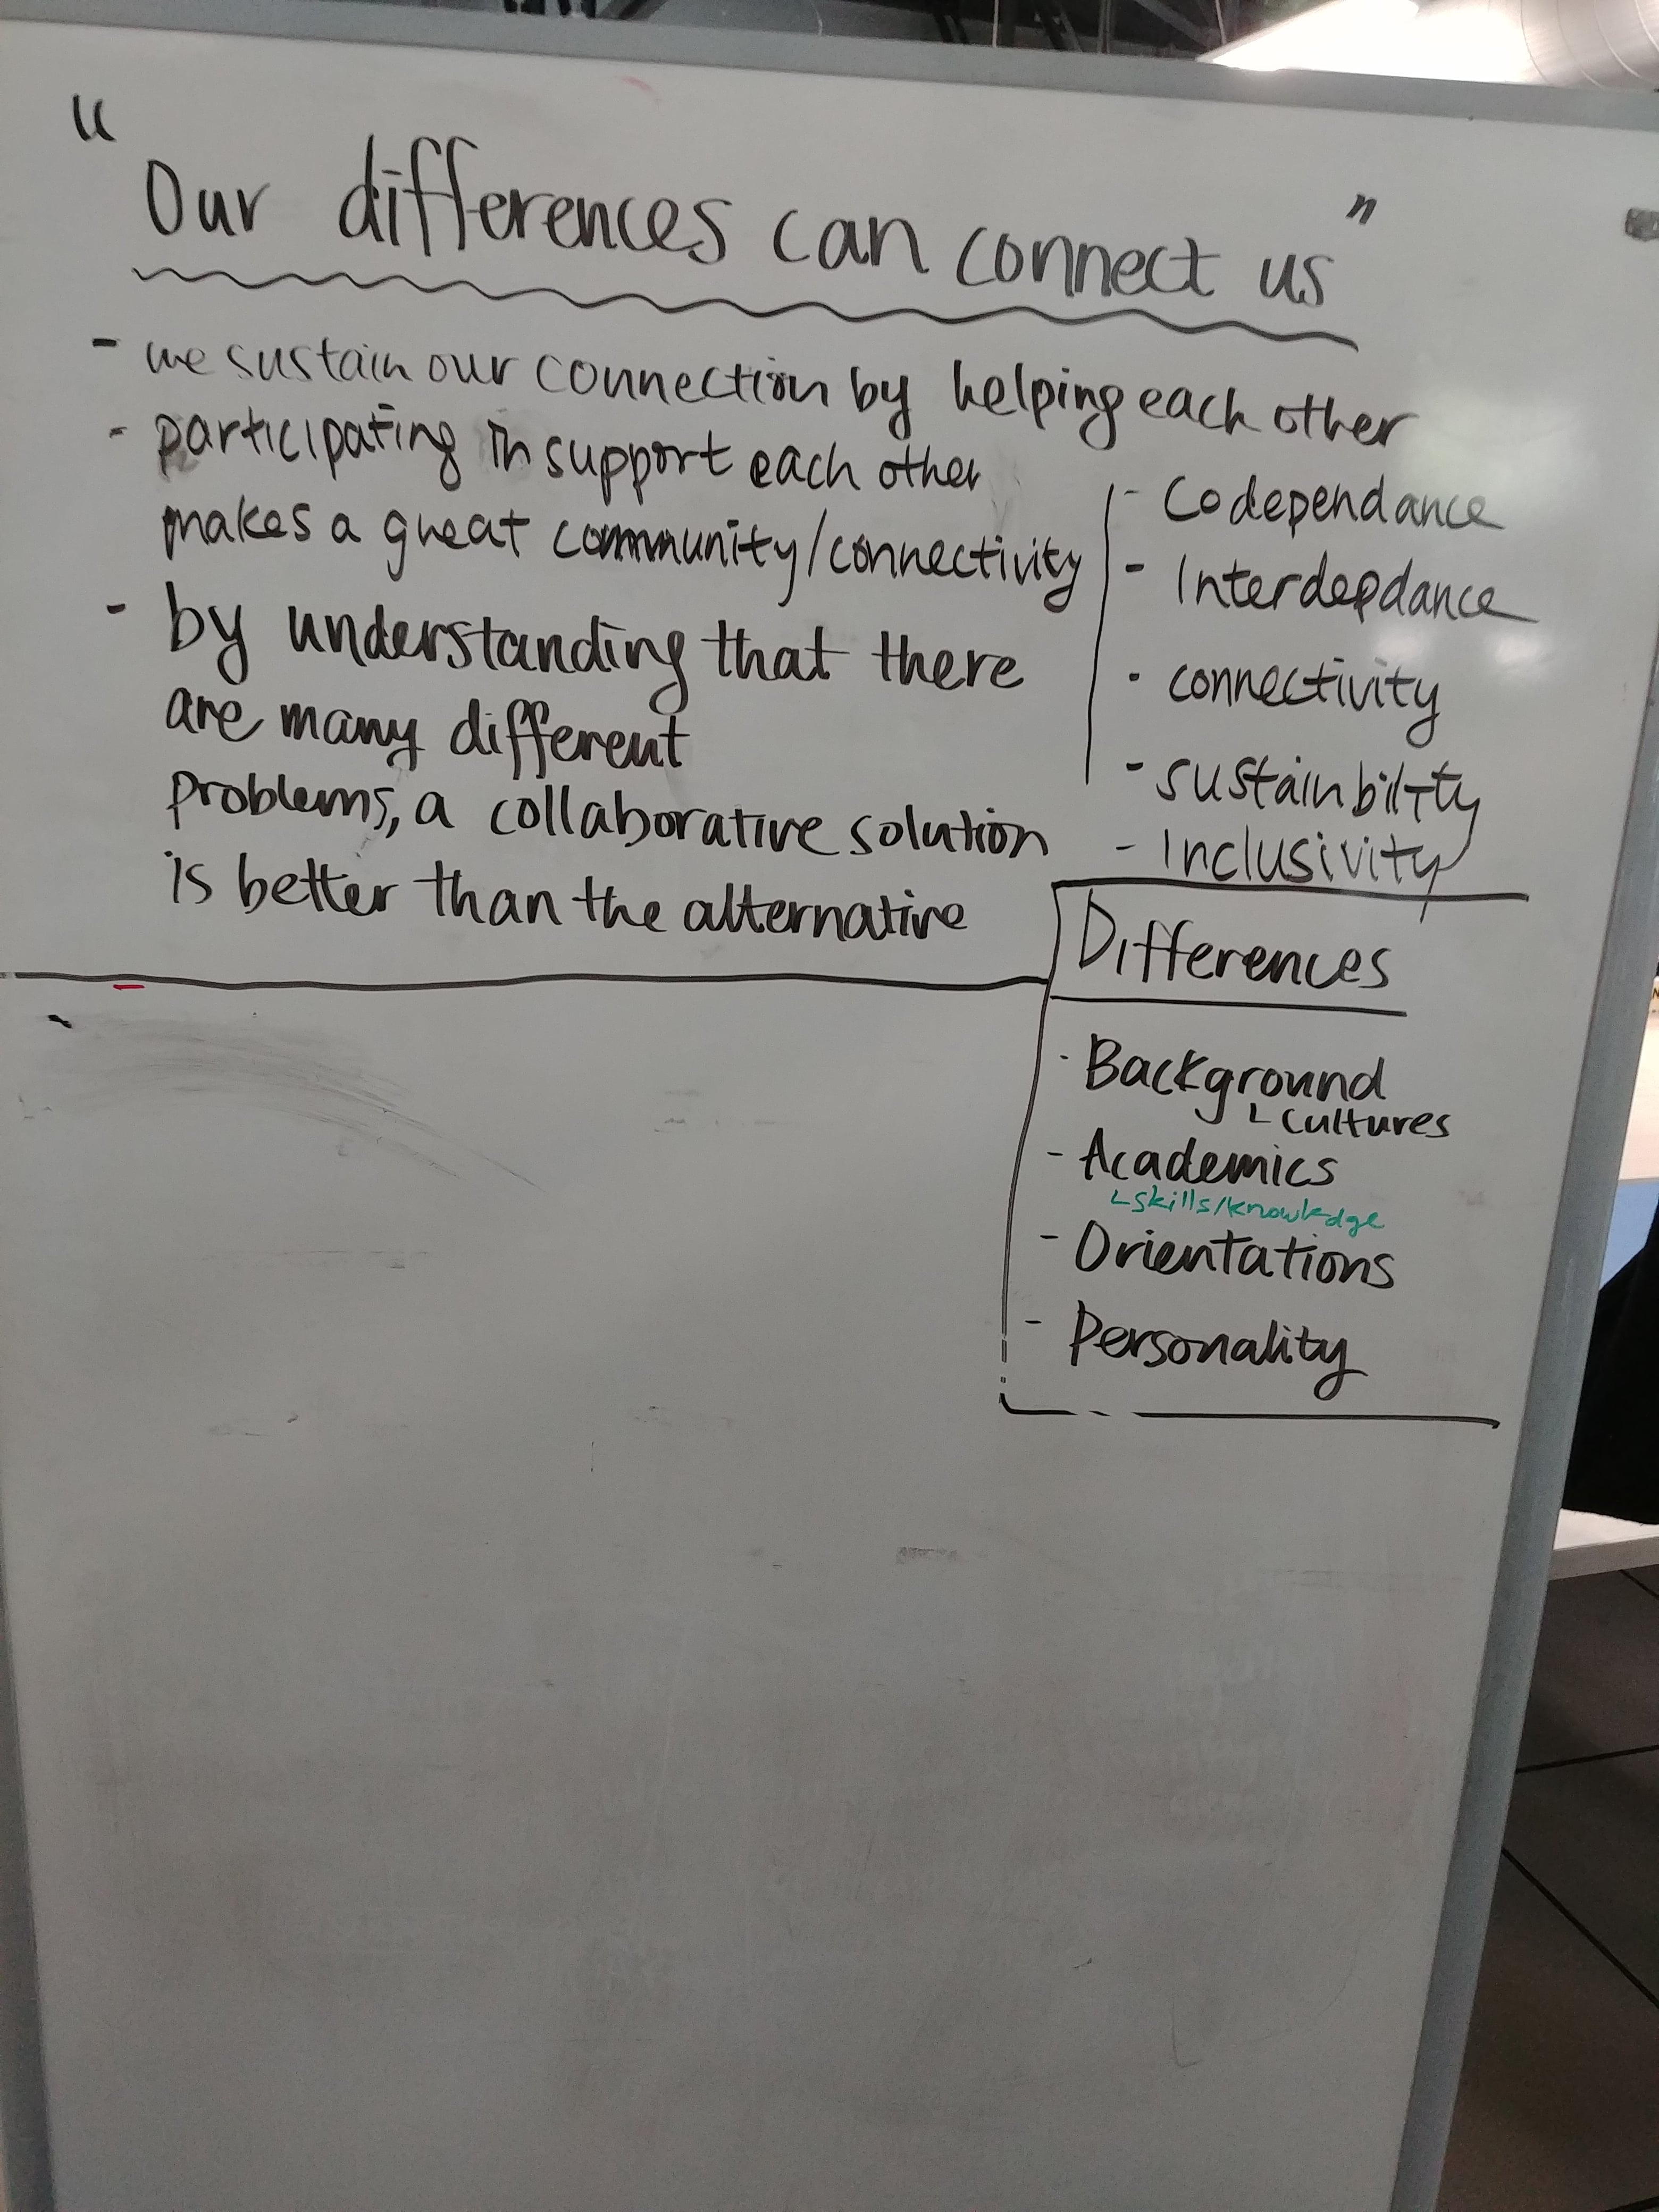 "Our differences can connect us"
- we sustain our connection by helping each other
- participating in support each other
makes a great community/connectivity
- by understanding that there
are many different
problems, a collaborative solution
is better than the alternative
- Codependance
- Interdepdance
- connectivity
- sustainbility
- Inclusivity
Differences
- Background
cultures
- Academics
skills/knowledge
- Orientations
- Personality